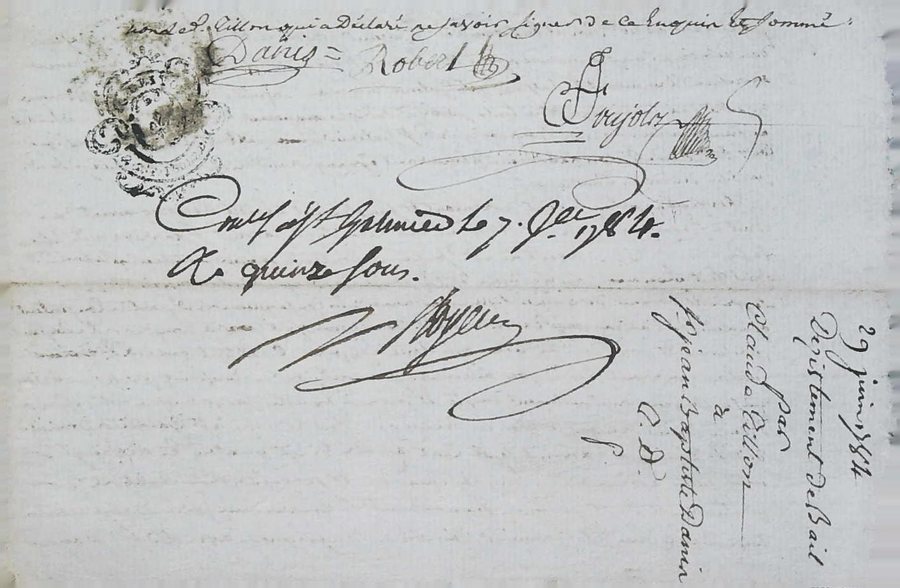 non led. Gillon qui a Déclaré ne savoir signer de ce Enquis Et sommé
Danis = Robert
Poujolz
Con.lé à St Galmier Le 7. Jlet 1784.
Re quinze sous.
Royer
29 juin 1784
Desistement de Bail
par
Claude Gillon
à
Sr. jean Baptiste Danis
C. D.